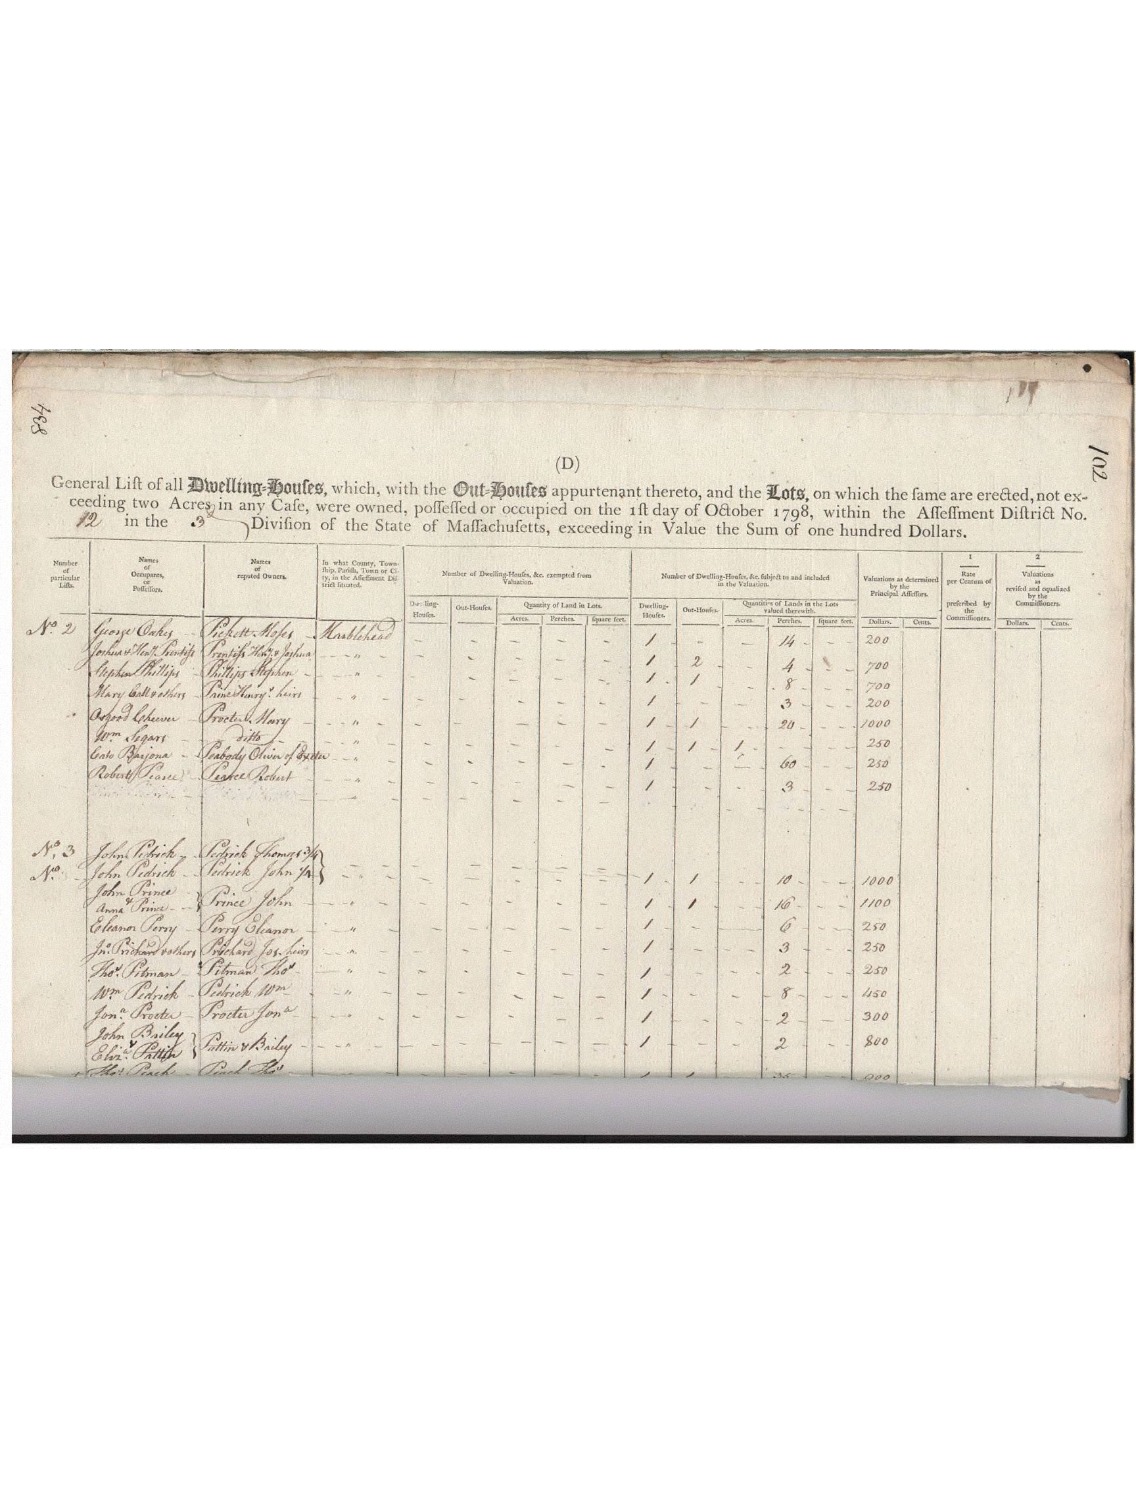 834
102
(D)
General Liſt of all Dwelling-Houſes, which, with the Out-Houſes appurtenant thereto, and the Lots, on which the ſame are erected, not ex-
ceeding two Acres in any Caſe, were owned, poſſeſſed or occupied on the 1ſt day of October 1798, within the Aſſeſſment Diſtrict No.
12 in the 3d Diviſion of the State of Maſſachuſetts, exceeding in Value the Sum of one hundred Dollars.
Number of particular Liſts.
Names of Occupants, or Poſſeſſors.
Names of reputed Owners.
In what County, Townſhip, Pariſh, Town or City, in the Aſſeſſment Diſtrict ſituated.
Number of Dwelling-Houſes, &c. exempted from Valuation.
Number of Dwelling-Houſes, &c. ſubject to and included in the Valuation.
Valuations as determined by the Principal Aſſeſſors.
1 Rate per Centum of preſcribed by the Commiſſioners.
2 Valuations as reviſed and equalized by the Commiſſioners.
Dwelling-Houſes. Out-Houſes. Quantity of Land in Lots. Dwelling-Houſes. Out-Houſes. Quantities of Lands in the Lots valued therewith.
Acres. Perches. Square feet. Acres. Perches. Square feet. Dollars. Cents. Dollars. Cents.
No. 2 George Oakes Pickett Moſes Marblehead 1 - - 14 200
Joshua & Heny. Prentiſs Prentiſs Heny. & Joshua " 1 2 - 4 700
Stephen Phillips Phillips Stephen " 1 1 - 8 700
Mary Call & others Prince Henry's heirs " 1 - - 3 200
Osgood Cheever Procter Mary " 1 1 - 20 1000
Wm Segars ditto " 1 1 1 250
Cato Barjona Peabody Oliver of Exeter 1 - - 60 250
Robert Pearce Pearce Robert " 1 - - 3 250
No. 3 John Pedrick Pedrick Thomas 3/4
No. John Pedrick Pedrick John 1/4 " 1 1 - 10 1000
John Prince
& Anna Prince Prince John " 1 1 - 16 1100
Eleanor Perry Perry Eleanor " 1 - - 6 250
Jno. Prichard & others Prichard Jos. heirs " 1 - - 3 250
Thos. Pitman Pitman Thos " 1 - - 2 250
Wm Pedrick Pedrick Wm " 1 - - 8 450
Jona. Procter Procter Jona " 1 - - 2 300
John Bailey
& Eliza. Pattin Pattin & Bailey " 1 - - 2 800
Thos Peach Peach Thos 1 1